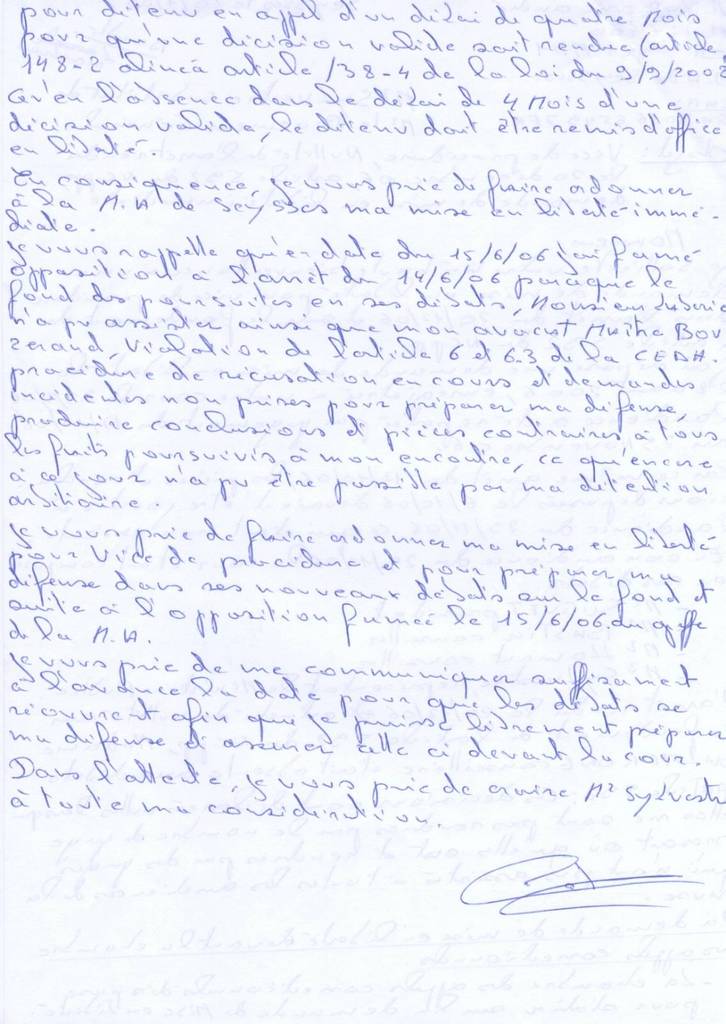 pour ditenu en appel d'un dilai de quatre Mois
pour qu'une dicision valide soit rendue (article
148-2 alinéa article 138-4 de la loi du 9/9/2002
Qu'en l'absence dans le délai de 4 Mois d'une
dicision valide, le ditenu doit être remis d'office
en liberté.
En consiquence, je vous prie de faire ordonner
à la M.A de Seysses ma mise en liberté immé-
diate.
Je vous rappelle qu'en date du 15/6/06 j'ai formé
opposition à l'arrêt du 14/6/06 parce que le
fond des poursuites en ses débats, Monsieur
n'a pu assister ainsi que mon avocat Maître Bou
zerand, Violation de l'article 6 et 6.3 de la CEDH.
procédure de récusation en cours et demandes
incidentes non prises pour préparer ma défense,
produire conclusions et pièces contraires à tous
les faits poursuivis à mon encontre, ce qu'encore
à ce jour n'a pu être possible par ma détention
arbitraire.
Je vous prie de faire ordonner ma mise en liberté
pour Vice de procédure et pour préparer ma
défense dans ses nouveaux débats sur le fond et
suite à l'opposition formée le 15/6/06 au greffe
de la M.A.
Je vous prie de me communiquer suffisament
à l'avance la date pour que les débats se
réouvrent afin que je puisse librement préparer
ma défense et assurer celle ci devant la cour.
Dans l'attente, je vous prie de croire Mr Sylvestre
à toute ma considération.